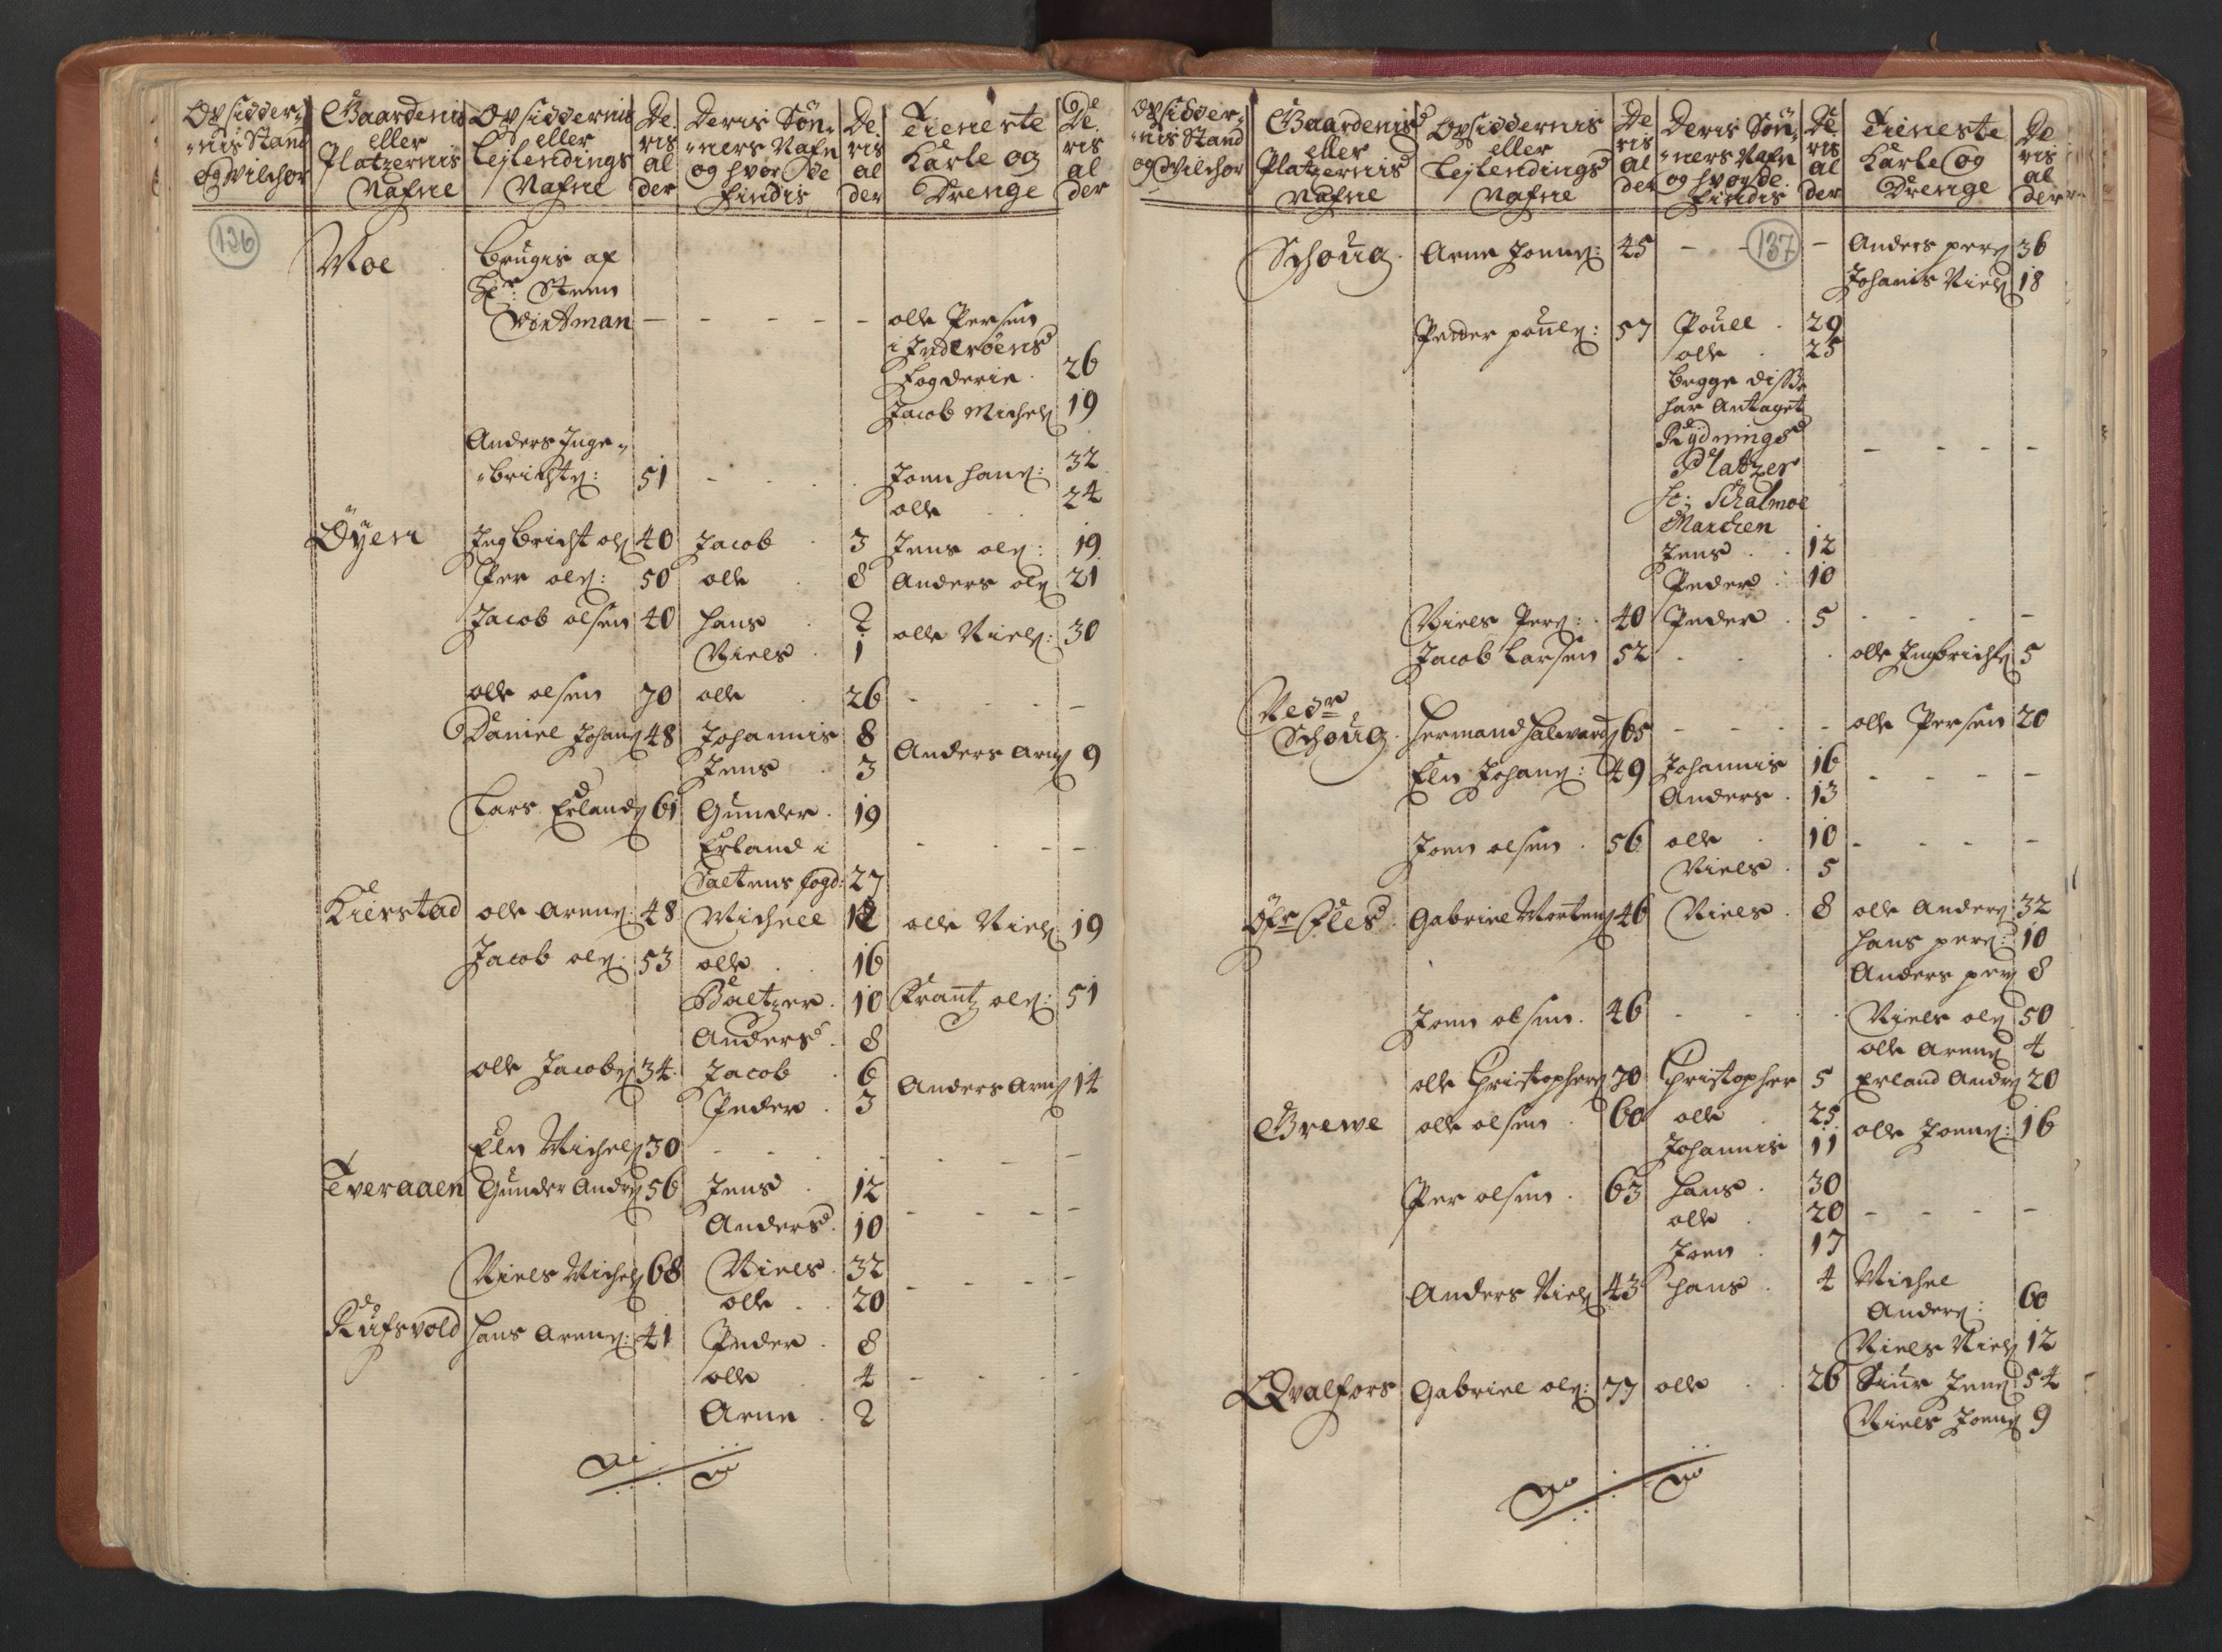 Opsidder-
nis Stand
og Vilchor
Gaardenis
eller
Platzernis
Nafne
Opsiddernis
eller
Lejlendings
Nafne
De
ris
al
der
Deris Søn-
ners Nafn
og hvor de
findis
De
ris
al
der
Tieneste
Karle og
Drenge
De
ris
al
der
136
Moe Brugis af
Hr: Steen
Wirtman - - - - - olle Persen
i Inderøens
fogderie 26
Jacob Michels 19
Anders Inge-
brichts: 51 - - - Joen hans: 32
olle 24
Øyen Ingbricht ols 40 Jacob 3 Jens ols: 19
Per ols: 50 olle 8 Anders ols 21
Jacob olsen 40 hans 2
Niels 1 olle Niels: 30
olle olsen 70 olle 26 - - -
Daniel Johans 48 Johannis 8
Jens 3 Anders Arns 9
Lars Erlands 61 Gunder 19
Erland i
Saltens fogd: 27 - - -
Kierstad olle Arnes: 48 Michell 12 olle Niels 19
Jacob ols: 53 olle 16
Baltzer 10 Frantz ols: 51
Anders 8
olle Jacobs 34 Jacob 6
Peder 3 Anders Arns 14
Eln Michels 30 - - - - -
Tveraaen Gunder Anders 56 Jens 12
Anders 10 - - - -
Niels Michels 68 Niels 32
olle 20 - - - -
Rufsvold hans Arnes: 41 Peder 8
olle 4 - - - -
Arne 2
Opsidder-
nis Stand
og Vilchor
Gaardenis
eller
Platzernis
Nafne
Opsiddernis
eller
Lejlendings
Nafne
De
ris
al
der
Deris Søn-
ners Nafn
og hvor de
findis
De
ris
al
der
Tieneste
Karle og
Drenge
De
ris
al
der
137
Schoug Arne Joens: 45 - - - Anders pers 36
Johanis Niels 18
Peder pouls: 57 Pouel 29
olle 25
begge disse
har Antaget
Rydnings
Platzer - - - -
S: Schalmoe
Marchen
Jens 12
Peder 10
Niels Pers: 40 Peder 5 - - -
Jacob Larsen 52 - - - olle Ingbrichts 5
Nedr
Schoug hermand halvards 65 - - - - olle Persen 20
Eln Johans: 49 Johannis 16
Anders 13 - - - -
Joen olsen 56 olle 10 - - - -
Niels 5
Øfr Fles Gabriel Mortens 46 Niels 8 olle Anders: 32
hans pers: 10
Anders pers 8
Joen olsen 46 - - - Niels ols 50
olle Arnes 4
olle Christophers 70 Christopher 5 Erland Anders 20
Grewe olle olsen 60 olle 25
Johannis 11 olle Joens: 16
Per olsen 63 hans 30
olle 20 - - - -
Joen 17
Anders Niels 43 hans 4 Michel
Anders: 60
Niels Niels 12
Qvalfors Gabriel ols: 77 olle 26 Siur Jens 54
Niels Joens 9